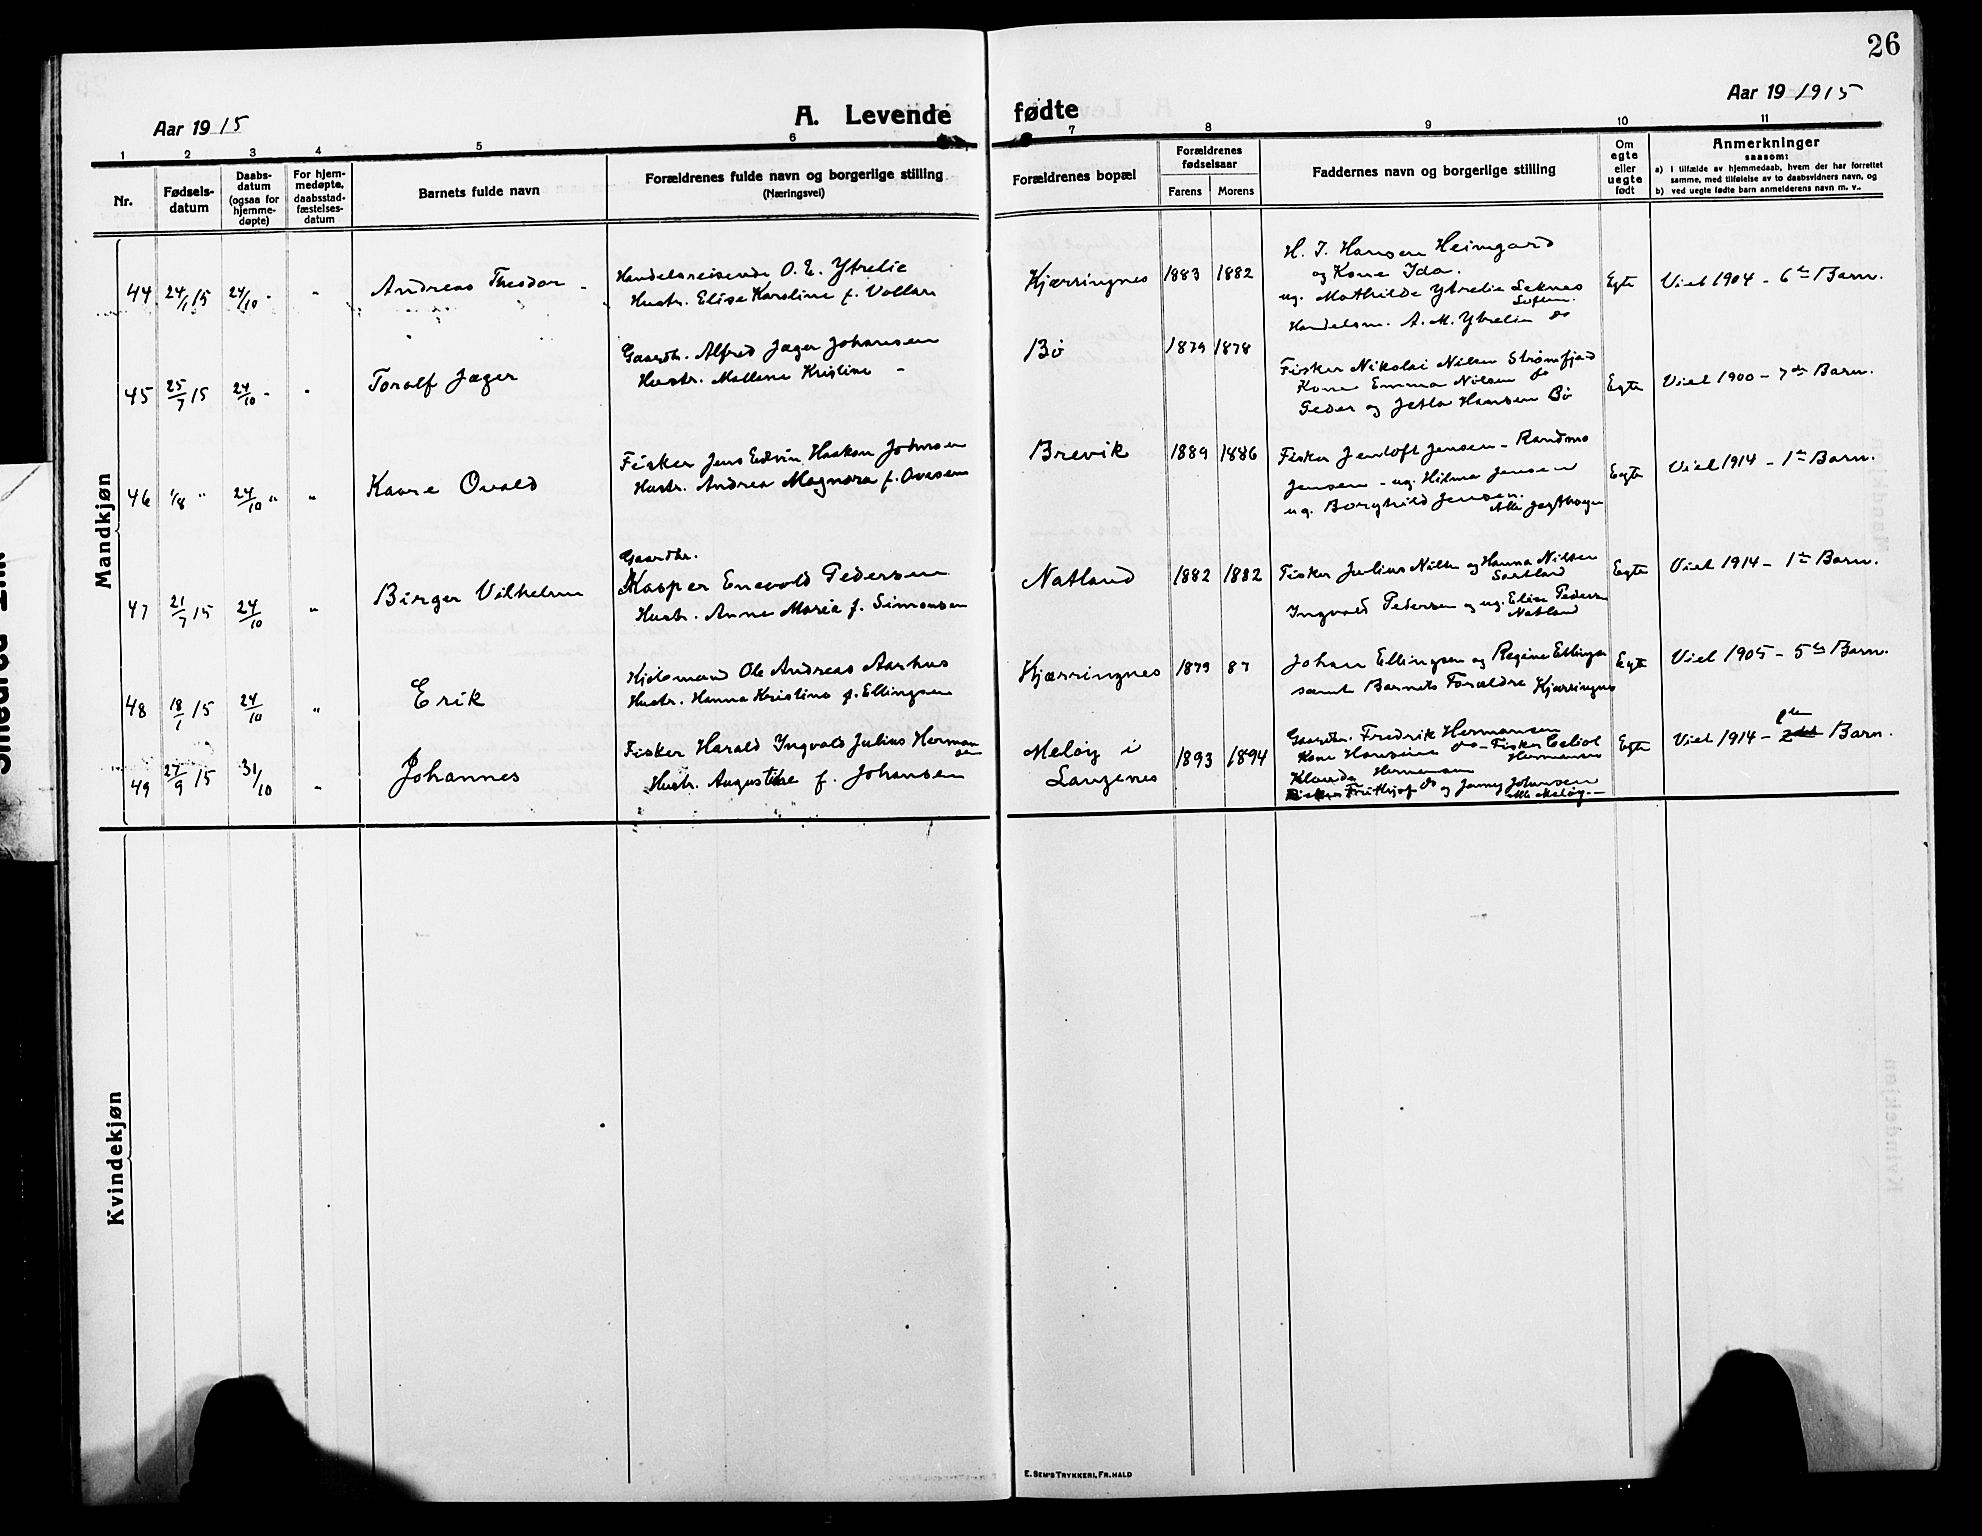 26
Aar 1915
A. Levende fødte
Aar 19 1915
1 2 3 4 5 6 7 8 9 10 11
Nr.
Fødsels-
datum
Daabs-
datum
(ogsaa for
hjemme-
døpte)
For hjem-
medøpte,
daabsstad-
fæstelses-
datum
Barnets fulde navn
Forældrenes fulde navn og borgerlige stilling
(Næringsvei)
Forældrenes bopæl
Forældrenes
fødselsaar
Farens Morens
Faddernes navn og borgerlige stilling
Om
egte
eller
uegte
født
Anmerkninger
saasom:
a) I tilfælde av hjemmedaab, hvem der har forrettet
samme, med tilføielse av to daabsvidners navn, og
b) ved uegte fødte barn anmelderens navn m. v..
Mandkjøn
44 24/1 15 24/10 - " Andreas Theodor -
Handelsreisende O. E. Ytrelie
Hustr. Elise Karoline f. Vollan
Kjærringnes 1883 1882
H. J. Hansen Heimgard
og Kone Ida.
ug. Mathilde Ytrelie Leknes
Handelsm. A. M. Ytrelie do
Egte Viet 1904 - 6te Barn.
45 25/7 15 24/10 - " Toralf Jæger
Gaardbr. Alfred Jæger Johansen
Hustr. Mallene Kristine -
Bø 1879 1878
Fisker Nikolai Nilsen Strømfjord
Kone Emma Nilsen do
Peder og Jetta Hansen Bø
Egte Viet 1900 - 7de Barn.
46 1/8 " 24/10 " " Kaare Ovald
Fisker Jens Edvin Haakon Johnsen
Hustr. Andrea Magnora f. Ovesen
Brevik 1889 1886
Fisker Jentoft Jensen - Randine
Jensen - ug. Hilma Jensen
ug. Borghild Jensen.
Alle
Egte Viet 1914 - 1ste Barn.
47 21/7 15 24/10 " Birger Vilhelm
Gaardbr.
Kasper Enevold Pedersen
Hustr. Anne Maria f. Simonsen
Natland 1882 1882
Fisker Julius Nilsen og Hanna Nilsen
Sortland
Ingvald Pedersen og ug. Elise Pedersen
Natland
Egte Viet 1914 - 1ste Barn.
48 18/1 15 24/10 " Erik
Ole Andreas Aarhus
Hustr. Hanna Kristine f. Ellingsen
Kjærringnes 1879 87
Johan Ellingsen og Regine Ellingsen
samt Barnets Forældre Kjærringnes
Egte Viet 1905 - 5te Barn.
49 27/9 15 31/10 " Johannes
Fisker Harald Ingvald Julius Herman
sen
Hustr. Augustine f. Johansen
Meløy i
Langenes
1893 1894
Gaardbr. Fredrik Hermansen
Kone Hansine do - Fisker
Hermansen
Klaudia Hermansen
Fisker Frithjof do og Jenny Johnsen
Alle Meløy. -
Egte Viet 1914 - Barn.
Kvindekjøn
E. SEM'S TRYKKERI, FR.HALD